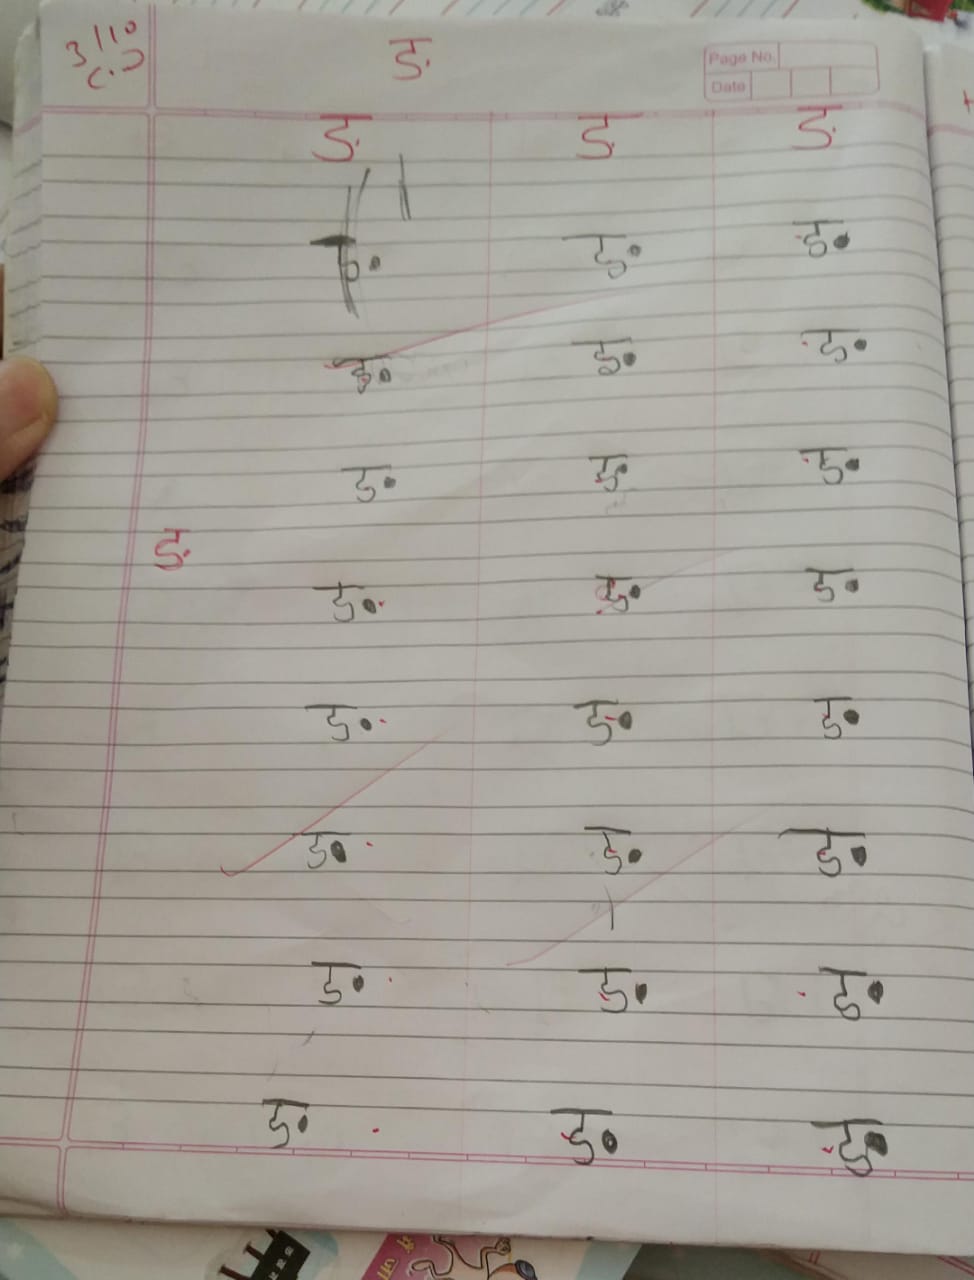 ङ
Page No.
Date
ङ ङ ङ
ङ ङ ङ
ङ ङ ङ
ङ ङ ङ
ङ
ङ ङ ङ
ङ ङ ङ
ङ ङ ङ
ङ ङ ङ
ङ ङ ङ